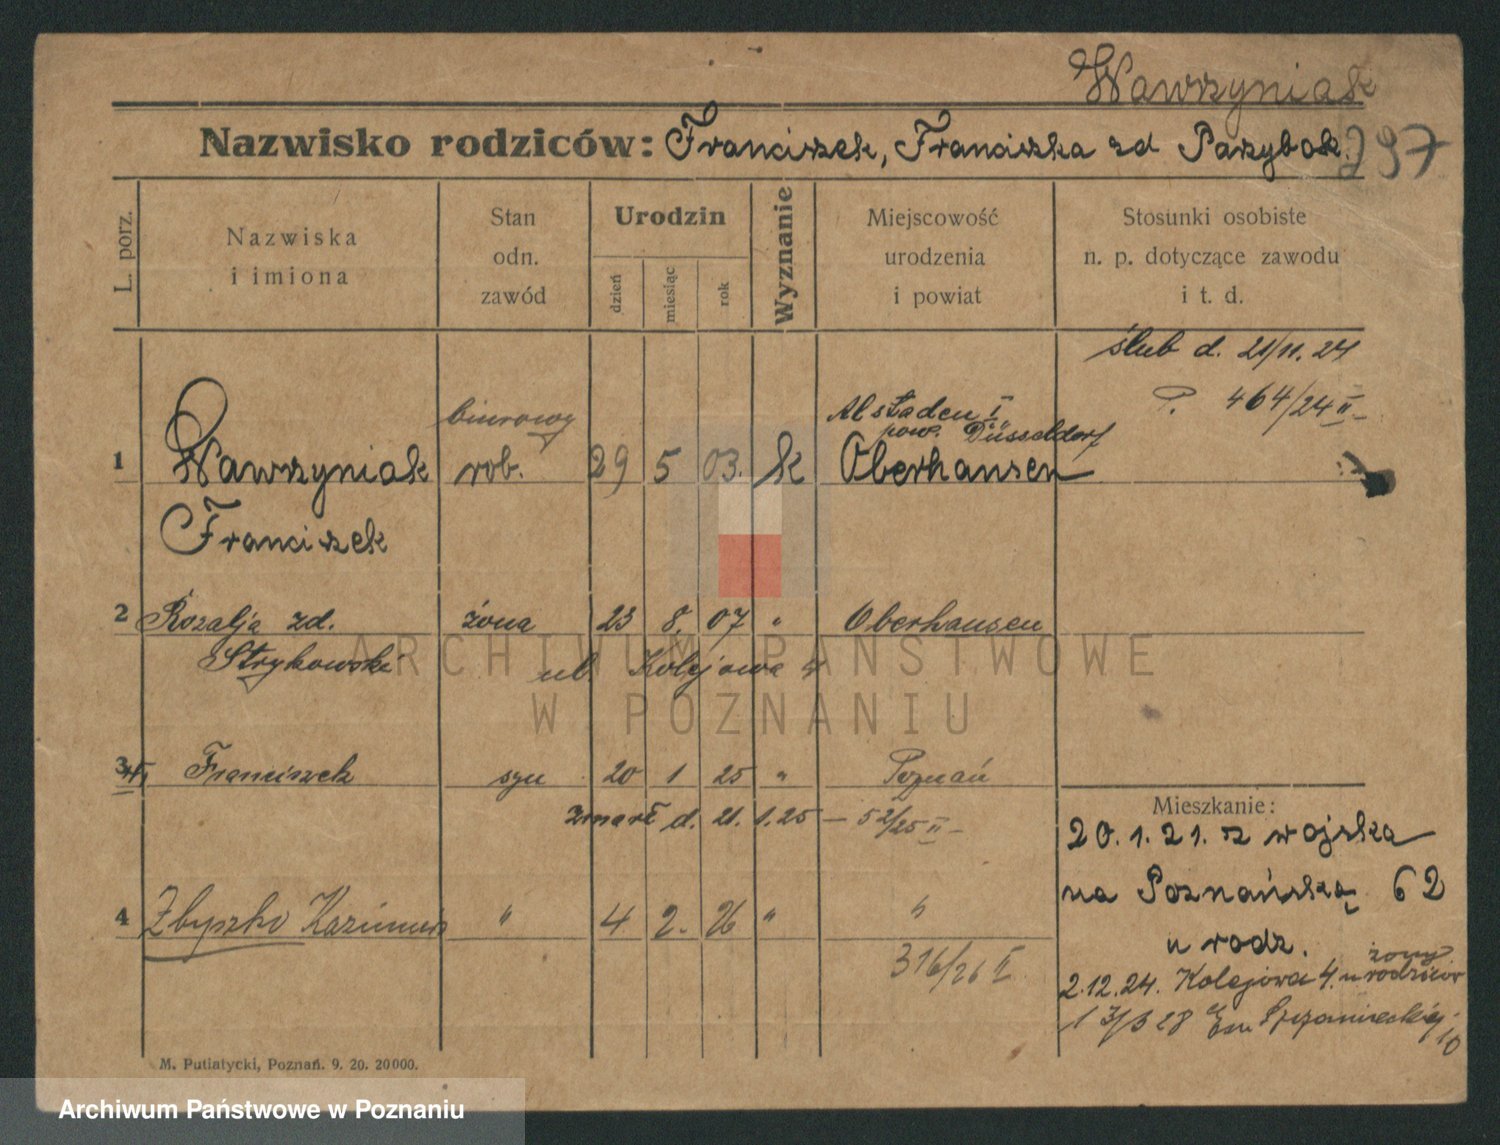 Wawrzyniak
Nazwisko rodziców: Franciszek, Franciszka zd Parzybok. 297
L. porz.
Nazwiska
i imiona
Stan
odn.
zawód
Urodzin
dzień
miesiąc
rok
Wyznanie
Miejscowość
urodzenia
i powiat
Stosunki osobiste
n. p. dotyczące zawodu
i t. d.
ślub d. 21/11. 24
464/24 II
biurowy
Alstaden I
pow. Düsseldorf
1 Wawrzyniak rob. 29 5 03. k Oberhausen
Franciszek
2 Rozalja zd. żona 23 8. 07 " Oberhausen
Strykowski ul. Kolejowa 4
3 Franciszek syn 20 1 25 " Poznań
zmarł d. 21. 1. 25 – 52/25 II –
4 Zbyszko Kazimierz " 4 2. 26 " "
316/26 II
Mieszkanie:
20. 1. 21. z wojska
na Poznańską 62
u rodz.
żony
2.12.24. Kolejowa 4. u rodziców
10
M. Putiatycki, Poznań. 9. 20. 20000.
ARCHIWUM PAŃSTWOWE
W POZNANIU
Archiwum Państwowe w Poznaniu